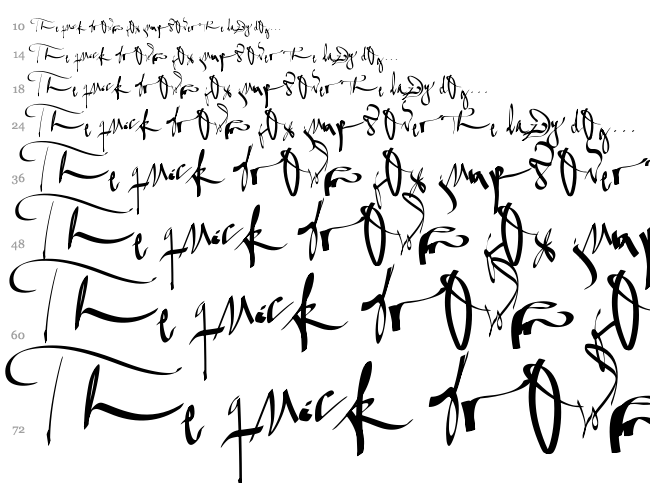 10 The quick brown fox jumps over the lazy dog...
14 The quick brown fox jumps over the lazy dog...
18 The quick brown fox jumps over the lazy dog...
24 The quick brown fox jumps over the lazy dog...
36 The quick brown fox jumps over
48 The quick brown fox jump
60 The quick brown fo
72 The quick brown